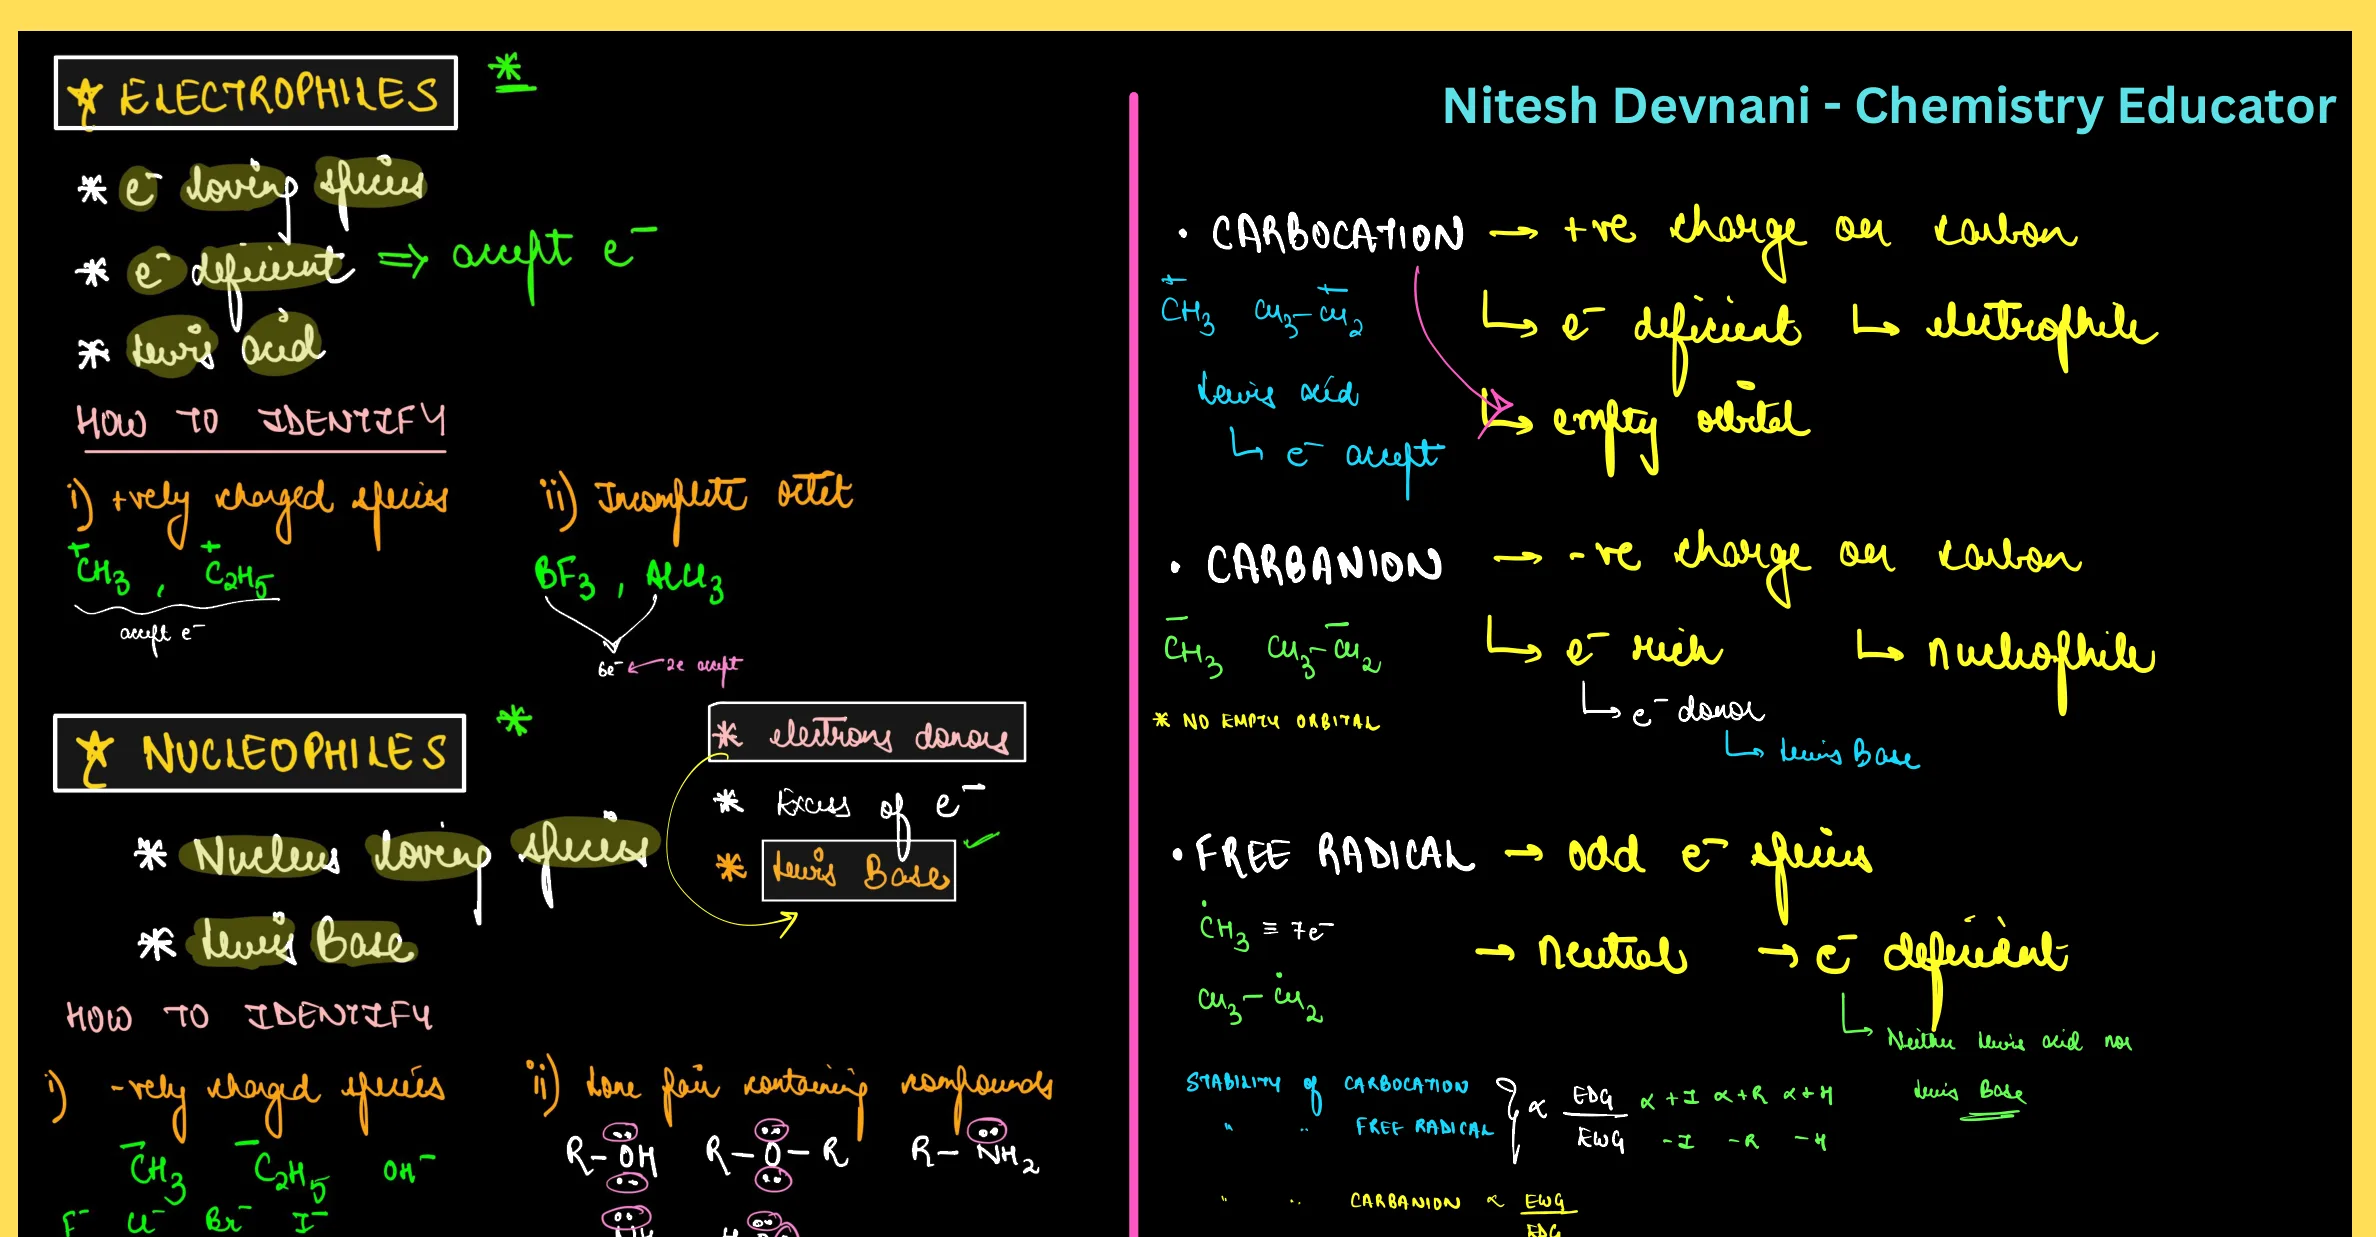 ELECTROPHILES *
* e⁻ loving species
* e⁻ deficient ⇒ accept e⁻
* Lewis acid
HOW TO IDENTIFY
i) +vely charged species
⁺CH₃ , ⁺C₂H₅
accept e⁻
ii) Incomplete octet
BF₃ , AlCl₃
6e⁻ ← 2e accept
NUCLEOPHILES *
* Nucleus loving species
* Lewis Base
* electrons donors
* Excess of e⁻
* Lewis Base ✓
HOW TO IDENTIFY
i) -vely charged species
⁻CH₃ ⁻C₂H₅ OH⁻
F⁻ Cl⁻ Br⁻ I⁻
ii) Lone pair containing compounds
R-OH R-O-R R-NH₂
Nitesh Devnani - Chemistry Educator
• CARBOCATION → +ve charge on carbon
⁺CH₃ CH₃-⁺CH₂
↳ e⁻ deficient ↳ electrophile
Lewis acid
↳ e⁻ accept
↳ empty orbital
• CARBANION → -ve charge on carbon
⁻CH₃ CH₃-⁻CH₂
↳ e⁻ rich ↳ nucleophile
* NO EMPTY ORBITAL
↳ e⁻ donor
↳ Lewis Base
• FREE RADICAL → odd e⁻ species
ĊH₃ ≡ 7e⁻
→ Neutral → e⁻ deficient
CH₃-ĊH₂
↳ Neither Lewis acid nor
Lewis Base
STABILITY of CARBOCATION
" " FREE RADICAL
} ∝ EDG / EWG
∝ +I ∝ +R ∝ +H
-I -R -H
" " CARBANION ∝ EWG / EDG